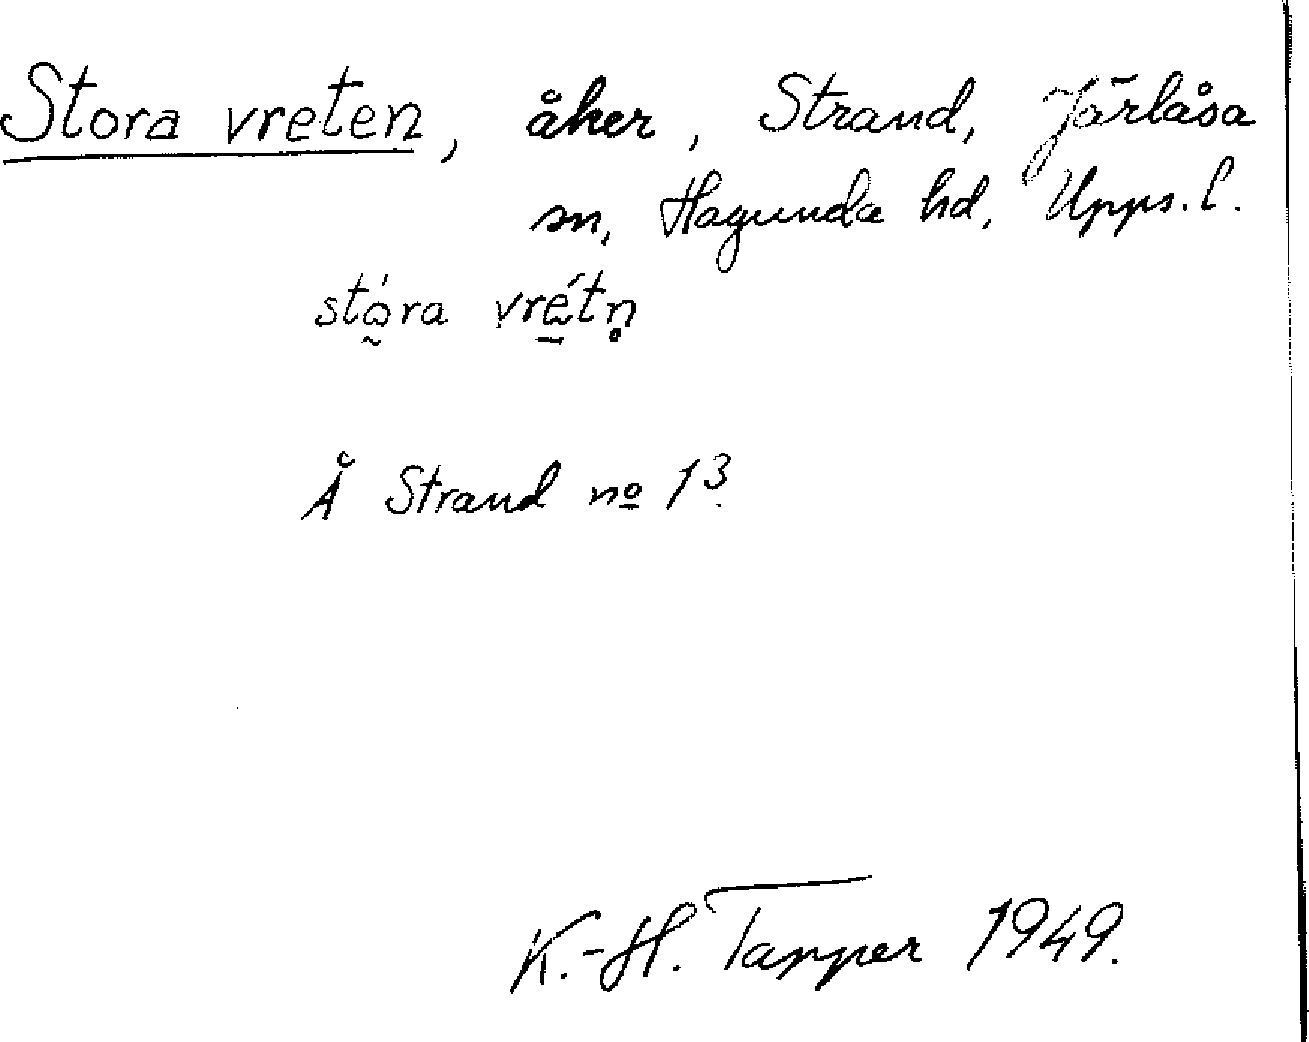 Stora vreten, åker, Strand, Järlåsa
sn, Hagunda hd, Upps. l.
stó̰ra vré̱tn̥
Å Strand nº 13.
K.-H. Tapper 1949.